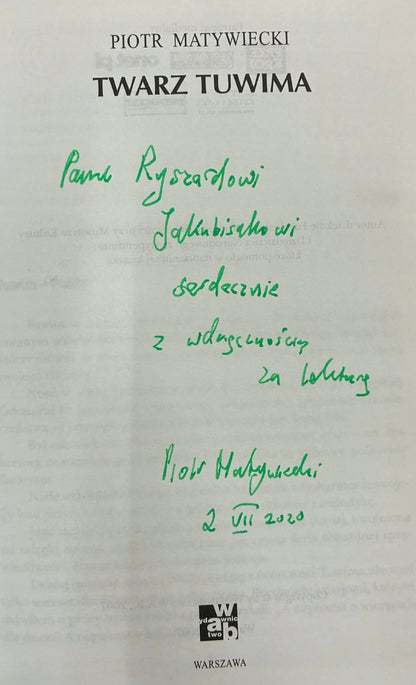 PIOTR MATYWIECKI
TWARZ TUWIMA
Panu Ryszardowi
Jakubisiakowi
serdecznie
z wdzięcznością
za lekturę
Piotr Matywiecki
2 VII 2020
wydawnictwo
w a b
WARSZAWA